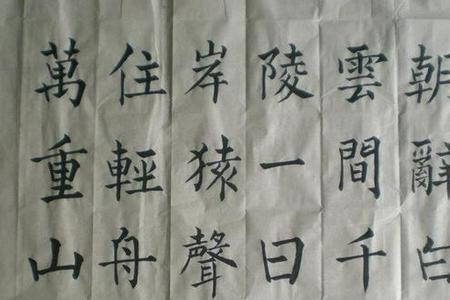 朝辭白
雲間千
陵一日
岸猿聲
住輕舟
萬重山